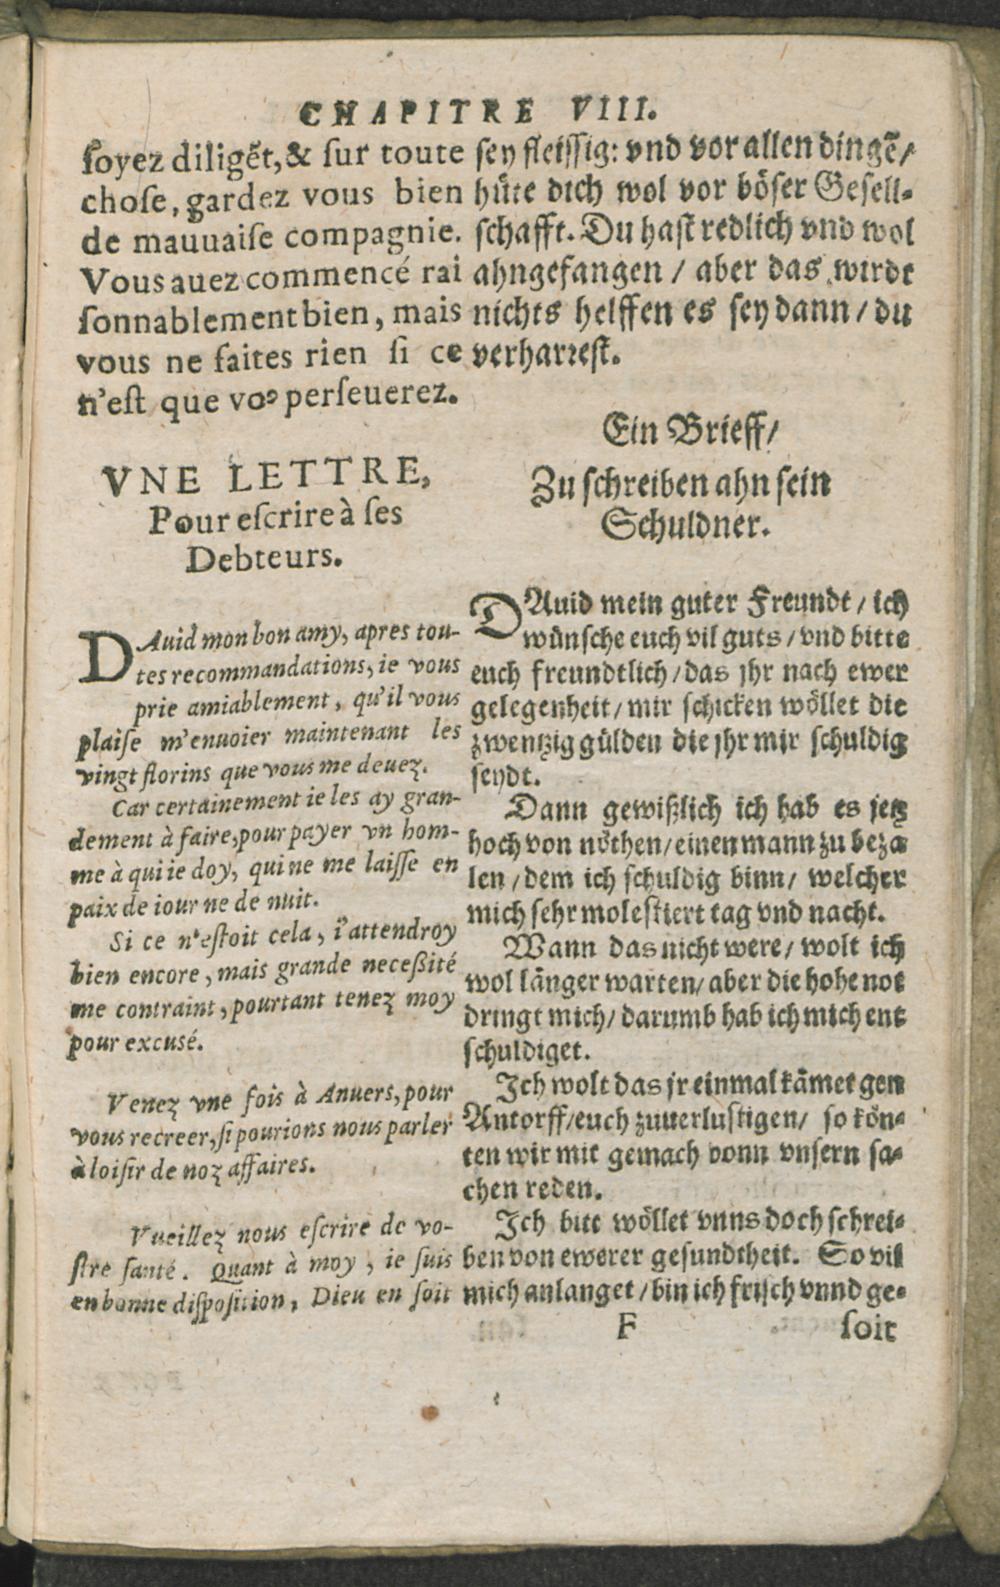 CHAPITRE VIII.
ſoyez diligēt, & ſur toute
choſe, gardez vous bien
de mauuaiſe compagnie.
Vous auez commencé rai
ſonnablement bien, mais
vous ne faites rien ſi ce
n'eſt que voꝰ perſeuerez.
VNE LETTRE,
Pour eſcrire à ſes
Debteurs.
DAuid mon bon amy, apres tou-
tes recommandations, ie vous
prie amiablement, qu'il vous
plaiſe m'enuoier maintenant les
vingt florins que vous me deuez.
Car certainement ie les ay gran-
dement à faire, pour payer vn hom-
me à qui ie doy, qui ne me laiſſe en
paix de iour ne de nuit.
Si ce n'eſtoit cela, i'attendroy
bien encore, mais grande neceßité
me contraint, pourtant tenez moy
pour excusé.
Venez vne fois à Anuers, pour
vous recreer, ſi pourions nous parler
à loiſir de noz affaires.
Vueillez nous eſcrire de vo-
ſtre ſanté. Quant à moy, ie ſuis
en bonne diſpoſition, Dieu en ſoit
ſey fleiſſig: vnd vor allen dingē/
hüte dich wol vor böſer Geſell-
ſchafft. Du haſt redlich vnd wol
ahngefangen / aber das wirdt
nichts helffen es ſey dann / du
verharreſt.
Ein Brieff/
Zu ſchreiben ahn ſein
Schuldner.
DAuid mein guter Freundt / ich
wünſche euch vil guts / vnd bitte
euch freundtlich / das jhr nach ewer
gelegenheit / mir ſchicken wöllet die
zwentzig gülden die jhr mir ſchuldig
ſeydt.
Dann gewißlich ich hab es jetz
hoch von nöthen / einen mann zu beza
len / dem ich ſchuldig binn / welcher
mich ſehr moleſtiert tag vnd nacht.
Wann das nicht were / wolt ich
wol länger warten / aber die hohe not
dringt mich / darumb hab ich mich ent
ſchuldiget.
Ich wolt das jr einmal kämet gen
Antorff / euch zuuerluſtigen / ſo kön-
ten wir mit gemach vonn vnſern ſa-
chen reden.
Ich bitt wöllet vnns doch ſchrei-
ben von ewerer geſundtheit. So vil
mich anlanget / bin ich friſch vnnd ge-
F
ſoit